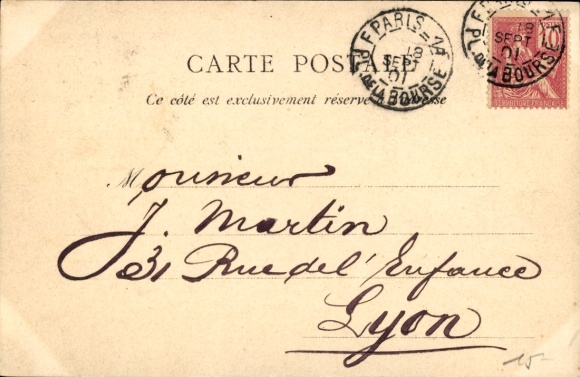 CARTE POSTALE
Ce côté est exclusivement réservé à l'adresse
PARIS
PL. DE LA BOURSE
18
SEPT
01
PL. DE LA BOURSE
18
SEPT
01
10
Monsieur
J. Martin
31 Rue de l'Enfance
Lyon
15-